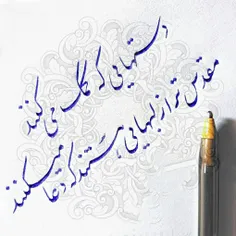 دستهایی که کمک می کنند
مقدس تر از لبهایی هستند که دعا میکنند